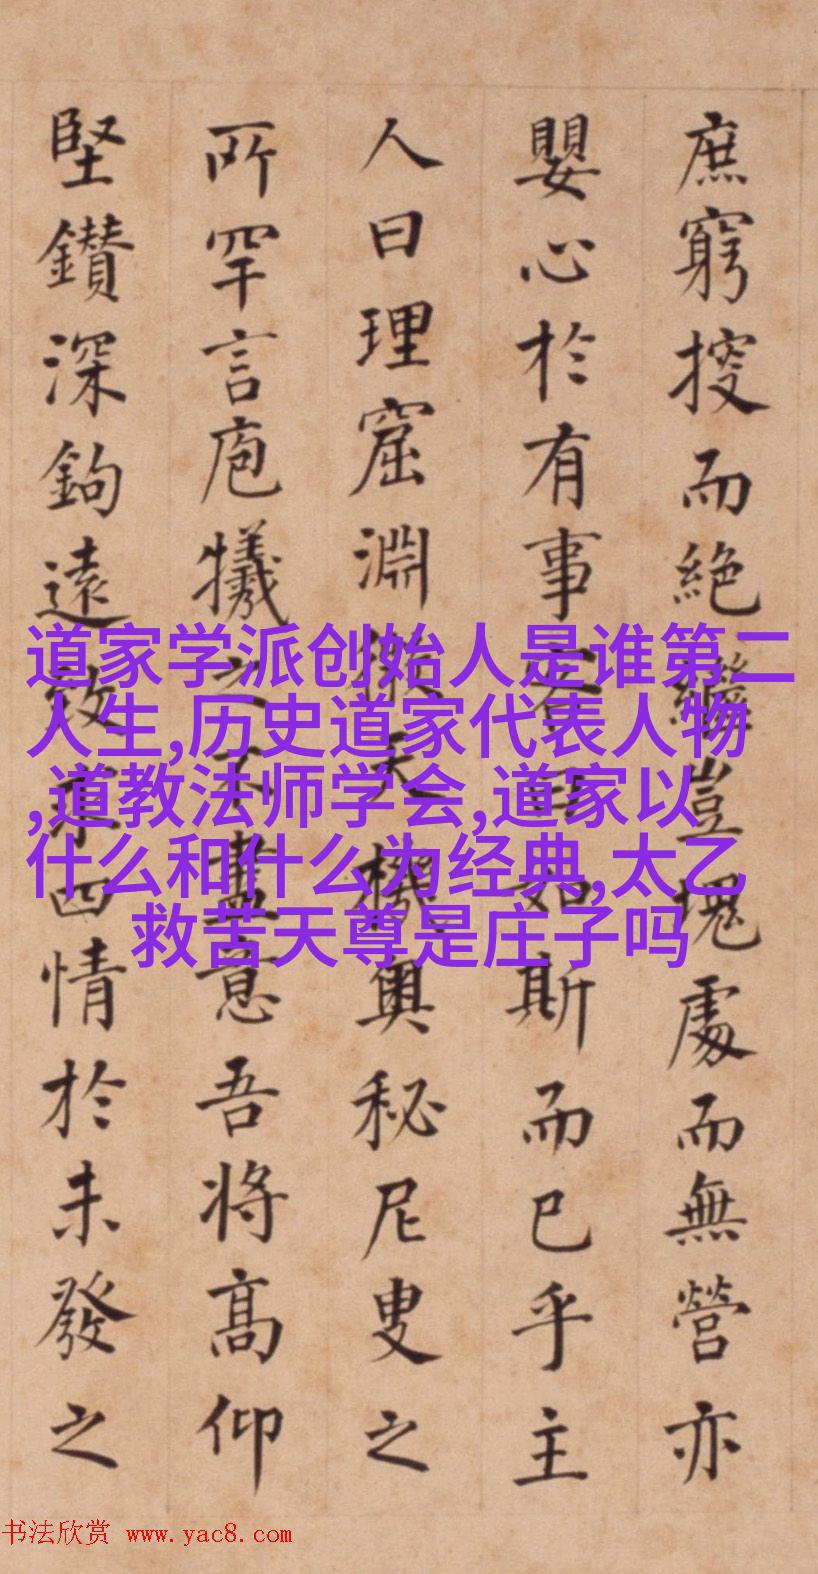 庶窮搜而絶豈塊處而無營亦
嬰心於有事如斯而已乎主
人曰理窟淵天機奧秘尼叟之
所罕言庖犧之不盡意吾將高仰
堅鑽深鉤遠四情於未發之
道家学派创始人是谁第二
人生,历史道家代表人物
,道教法师学会,道家以
什么和什么为经典,太乙
救苦天尊是庄子吗
书法欣赏 www.yac8.com